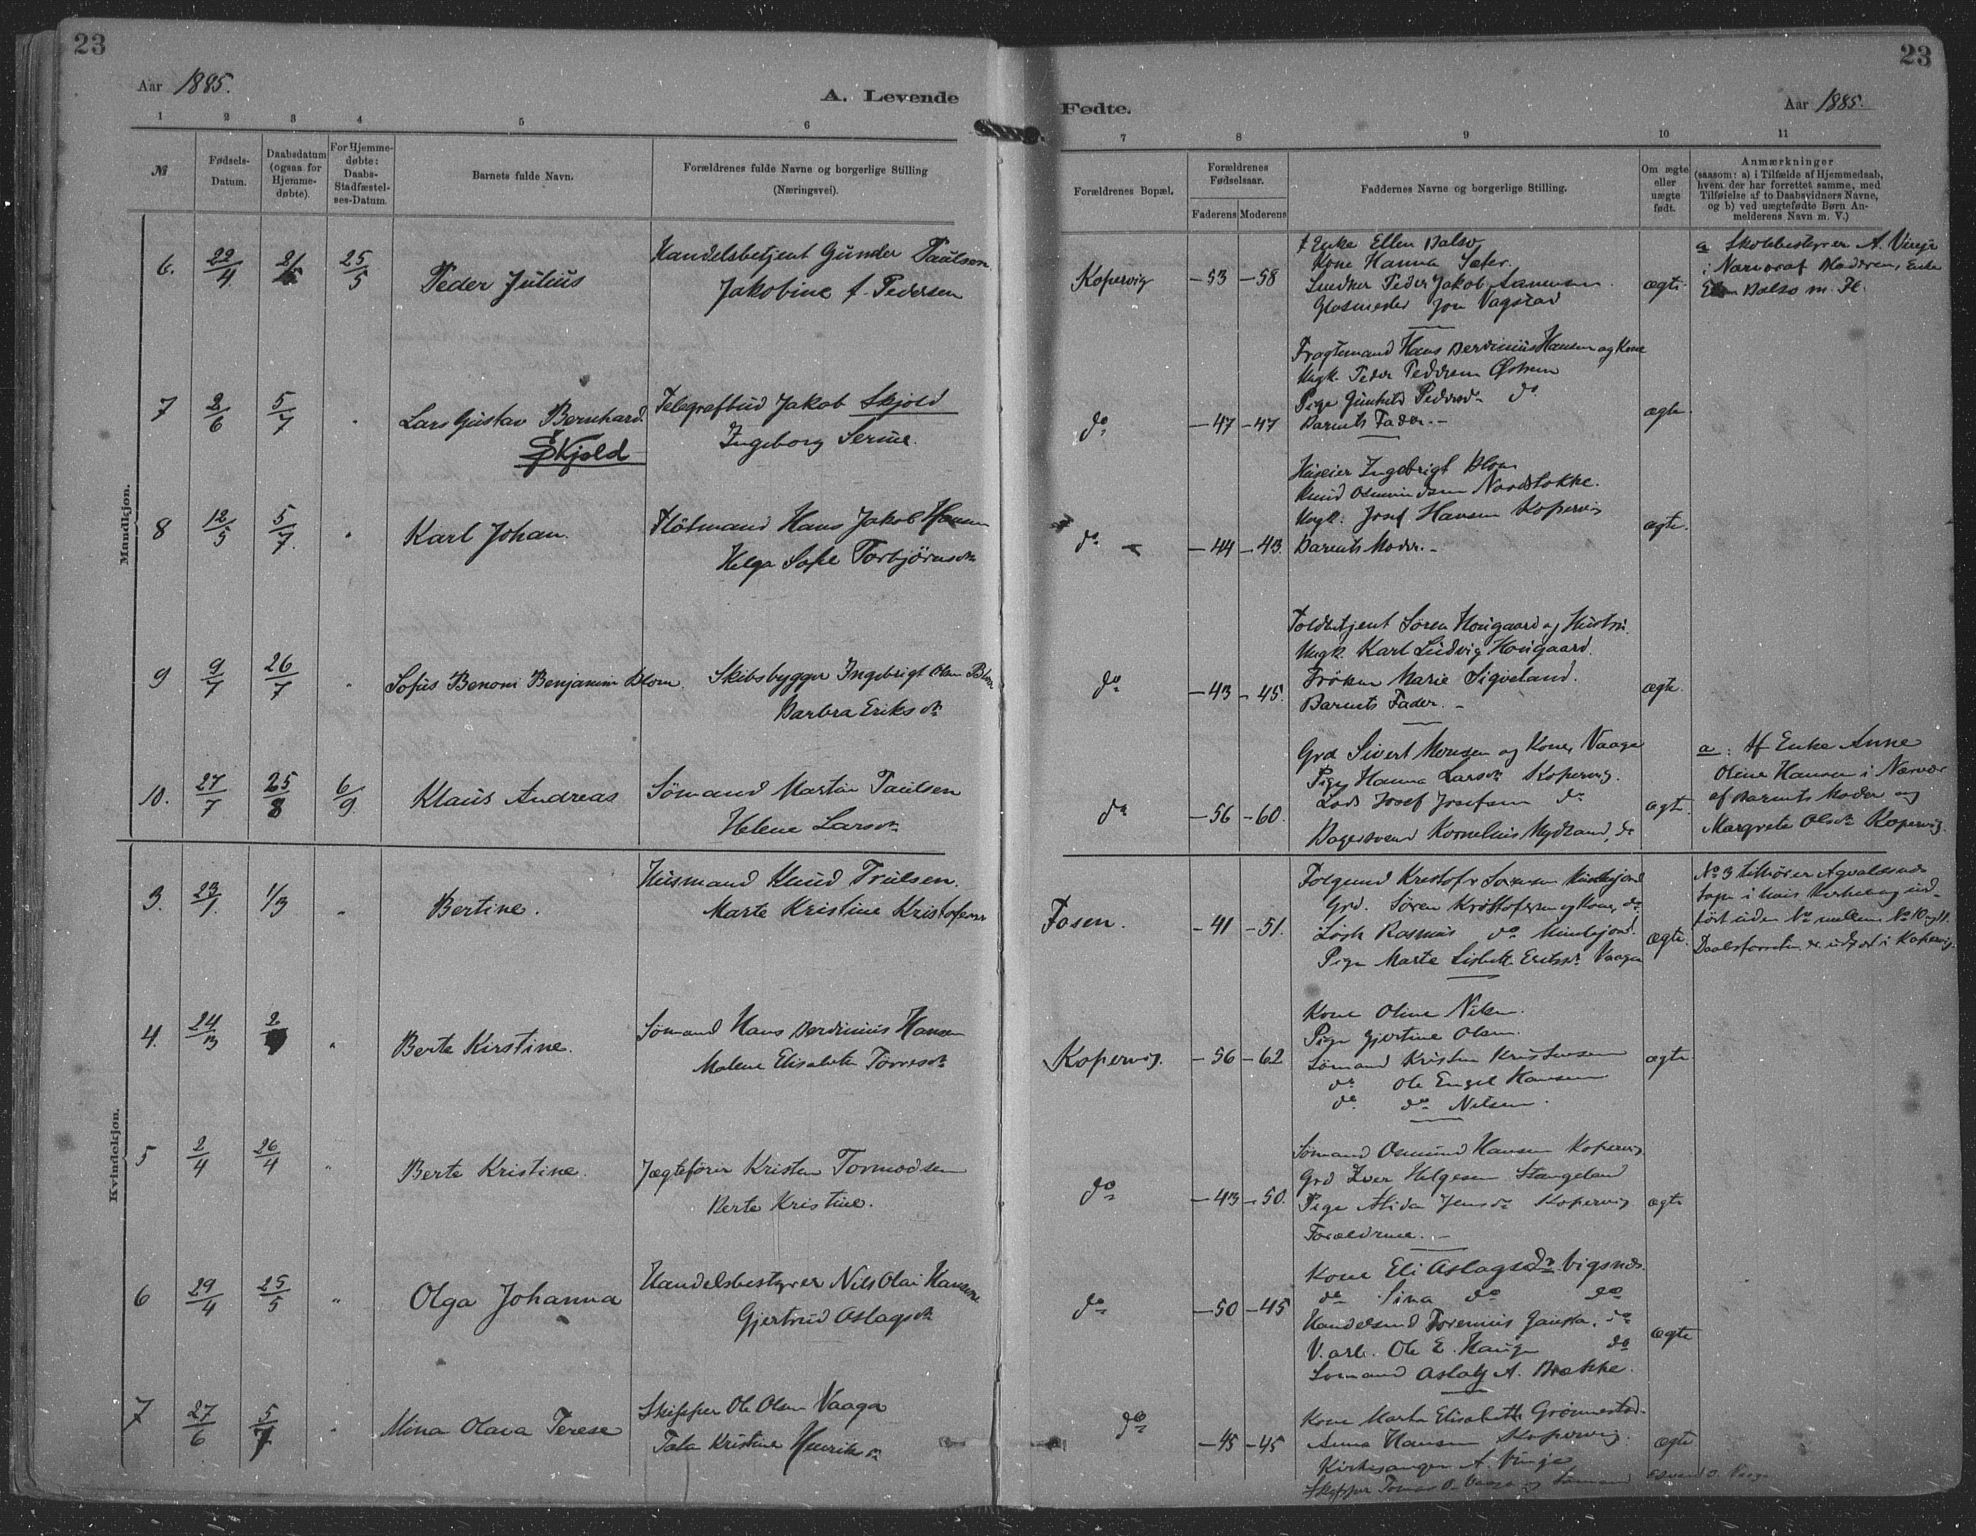 23
Aar 1885.
A. Levende
1 2 3 4 5 6
№
Fødsels-
Datum.
Daabsdatum
(ogsaa for
Hjemme-
døbte).
For Hjemme-
døbte:
Daabs-
Stadfæstel-
ses-Datum.
Barnets fulde Navn.
Forældrenes fulde Navne og borgerlige Stilling
(Næringsvei).
Mandkjøn.
6. 22/4 21/5 25/5 Peder Julius
Handelsbetjent Gunder Paulsen
Jakobine f. Pedersen
7 2/6 5/7 " Lars Gustav Bernhard
Skjold
Telegrafbud Jakob Skjold
Ingeborg Serine.
8 12/5 5/7. " Karl Johan.
Flötmand Hans Jakob Hansen
Helga Sofie Torbjørnsdr
9 9/7 26/7 " Sofus Benoni Benjamin Blom.
Skibsbygger Ingebrigt Olsen Blom
Barbra Eriksdr
10. 27/7 25/8 6/9. Klaus Andreas
Sømand Martin Paulsen
Helene Larsdr
Kvindekjøn.
3. 23/1. 1/3 " Bertine.
Husmand Knud Trulsen.
Marte Kristine Kristofersen
4. 24/3 2 " Berte Kirstine.
Sømand Hans Berdinius Hansen
Malene Elisabeth Torresdr
5 2/4 26/4 " Berte Kristine.
Jægtefører Kristen Tormodsen
Berte Kristine.
6 29/4 25/5 " Olga Johanna
Handelsbestyrer Nils Olai Hansen
Gjertrud Aslagsdr
7 27/6 5/7 " Mina Olava Terese
Skipper Ole Olsen Vaaga
Tala Kristine Henriksdr
23
Fødte.
Aar 1885.
7 8 9 10 11
Forældrenes Bopæl.
Forældrenes
Fødselsaar.
Faderens Moderens
Faddernes Navne og borgerlige Stilling.
Om ægte
eller
uægte
født.
Anmærkninger
(saasom: a) i Tilfælde af Hjemmedaab,
hvem der har forrettet samme, med
Tilføielse af to Daabsvidners Navne,
og b) ved uægtefødte Børn An-
melderens Navn m. V.)
Kopervig -53 -58
Enke Ellen Dalsø
Kone Hanna Sæter.
Snedker Peder Jakob
Glasmester Jon Vagstad
ægte.
a Skolebestyrer A. Vinje
i Nærvær af Moderen, Enke
Ellen Dalsø m. Fl.
do -47 -47
Fragtemand Hans Berdinius Hansen og Kone
Ungk. Peder Pedersen
Pige Gunhild Pedersdr do
Barnets Fader.-
ægte.
do -44 -43.
Huseier Ingebrigt Blom
Knud Osmundsen Nordstokke.
Ungk. Josef Hansen Kopervig
Barnets Moder.-
ægte.
do -43 -45.
Toldbetjent Søren Hougaard og Hustru.
Ungk. Karl Ludvig Hougaard.
Frøken Marie Sigveland.
Barnets Fader.-
ægte.
do -56 -60.
Grd Sivert Monsen og Kone, Vaage
Pige Hanna Larsdr Kopervig.
Lods Josef Josefsen do
Bagersvend Kornelius Mydland, do
ægte.
a: Af Enke Anne
Oline Hansen i Nærvær
af Barnets Moder og
Margrete Olsdr Kopervig.
Fosen. -41 -51.
Folgemd Kristofer Sørensen
Grd. Søren Kristofersen og Kone, do
Rasmus do
Pige Marte Lisbeth Eriksdr Vaage
ægte.
No 3 tilhører Agvaldsnes
Sogn i hvis Kirkebog ind-
ført uden No mellem No 10 og 11.
Daabsforretn. er udført i Kopervig.
Kopervig. -56 -62
Kone Oline Nilsen.
Pige Gjertine Olsen.
Sømand Kristen Kristensen
do Ole Engel Hansen
do do Nilsen.
ægte
do -43 -50.
Sømand Osmund Hansen Kopervig
Grd Iver Helgesen Stangeland
Pige Alida Jensdr Kopervig
Forældrene.-
ægte
do -50 -45
Kone Eli Aslagsdr Vigsnes.
do Sina do do
do
V. arb. Ole E. Hauge do
Sømand Aslag A. Brække.
ægte
do -45 -45
Kone Marta Elisabeth Grønnestad.
Anna Hansen Kopervig.
Kirkesanger A. Vinje
Skipper Tomas O. Vaage og Sømand Edvard O. Vaage
ægte